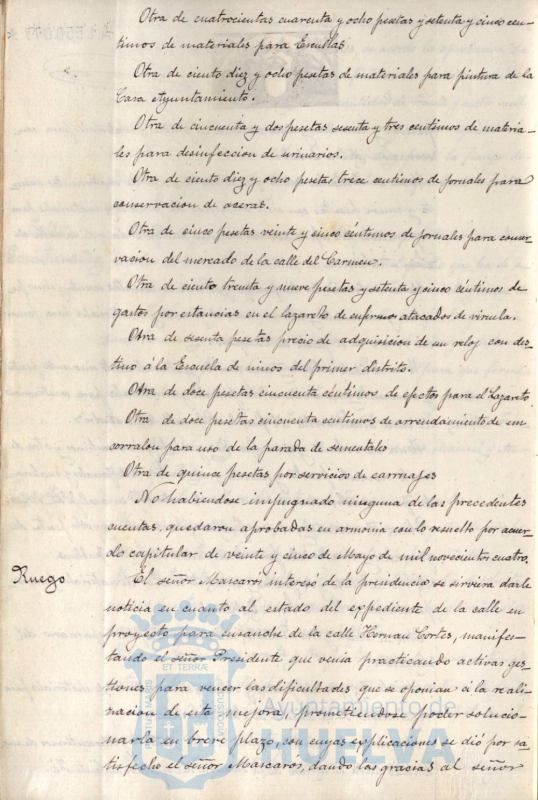 Otra de cuatrocientas cuarenta y ocho pesetas y setenta y cinco cen-
timos de materiales para Escuelas.
Otra de ciento diez y ocho pesetas de materiales para pintura de la
Casa Ayuntamiento.
Otra de cincuenta y dos pesetas sesenta y tres centimos de materia-
les para desinfeccion de urinarios.
Otra de ciento diez y ocho pesetas trece centimos de jornales para
conservacion de aceras.
Otra de cinco pesetas veinte y cinco céntimos de jornales para conser-
vacion del mercado de la calle del Carmen.
Otra de ciento treinta y nueve pesetas y setenta y cinco céntimos de
gastos por estancias en el lazareto de enfermos atacados de viruela.
Otra de sesenta pesetas precio de adquisicion de un reloj con des-
tino á la Escuela de niños del primer distrito.
Otra de doce pesetas cincuenta céntimos de efectos para el Lazareto.
Otra de doce pesetas cincuenta céntimos de arrendamiento de un
corralon para uso de la parada de sementales
Otra de quince pesetas por servicios de carruajes
No habiendose impugnado ninguna de las precedentes
cuentas, quedaron aprobadas en armonia con lo resuelto por acuer-
do capitular de veinte y cinco de Mayo de mil novecientos cuatro.
Ruego El señor Mascarós interesó de la presidencia se sirviera darle
noticia en cuanto al estado del expediente de la calle en
proyecto para ensanche de la calle Hernan Cortes, manifes-
tando el señor Presidente que venia practicando activas ges-
tiones para vencer las dificultades que se oponian á la reali-
zacion de esta mejora, prometiendose poder solucio-
narla en breve plazo, con cuyas explicaciones se dió por sa-
tisfecho el señor Mascarós, dando las gracias al señor
Ayuntamiento de
HUELVA